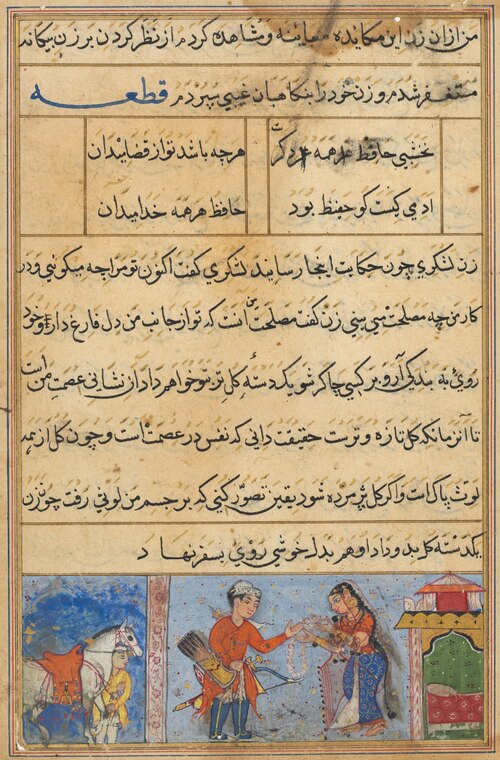 من ازان زن این معاینه و مشاهده کردم از نظر کردن بر زن بیکانه
مستغفر شدم و زن خود را بنکاهبان غیبی سپردم قطعه
نخشبی حافظ همه دکر ست هرچه باشد تو از قضا میدان
ادمی کیست کو حفیظ بود حافظ هر همه خدا میدان
زن لشکری چون حکایت اینجا رسانید لشکری کفت اکنون تو مرا چه میکوئی و در
کار من چه مصلحت می بینی زن کفت مصلحت من انست که تو از جانب من دل فارغ داری و خود
روی به بندکی آری و بر کسی چاکر شو یک دسته کل تر بتو خواهم داد آن نشانی عصمت من است
تا آنزمانکه کل تازه و ترست حقیقت دانی که نفس در عصمت است و چون کل از همه
لوث پاک است و اکر کل پژمرده شود یقین تصور کنی که بر جسم من لوثی رفت چون زن
یکدسته کل بدو داد او هم بدل خوشی روی بسفر نهاد